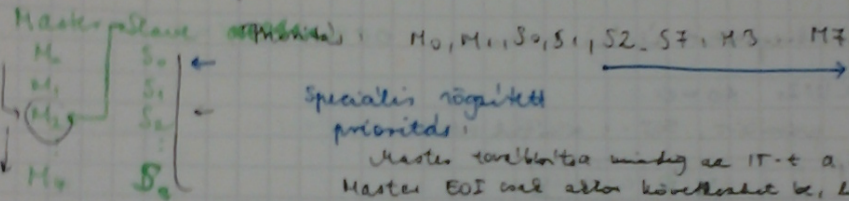 Master Slave prioritás: M0, M1, S0, S1, S2.. S7, M3 ... M7
M0 S0
M1 S1
M2 S2
M7 S7
Speciális rögzített
prioritás:
Master továbbítja mindig az IT-t a
Master EOI csak akkor következhet be,